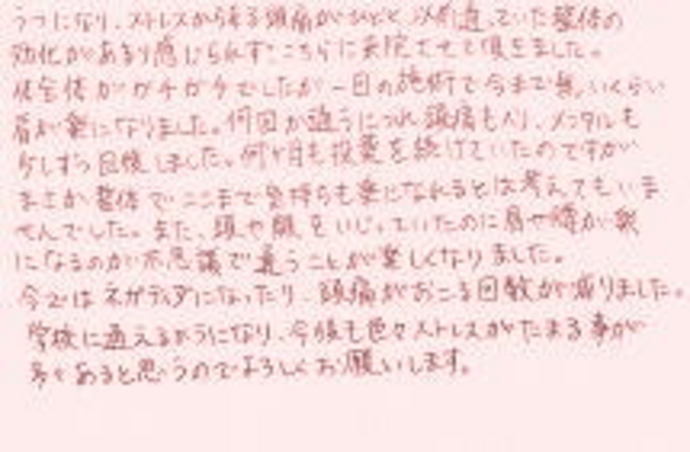 うつになり、ストレスから来る頭痛がひどく、以前通っていた整体の
効化があまり感じられず、こちらに来院させて頂きました。
体全体がガチガチでしたが一日の施術で今まで無いくらい
肩が楽になりました。何回か通うにつれ頭痛も入り、メンタルも
少しずつ回復しました。何ヶ月も投薬を続けていたのですが
まさか整体でここまで気持ちも楽になれるとは考えてもいま
せんでした。また、頭や顔をいじっていたのに肩や腰が楽
になるのが不思議で通うことが楽しくなりました。
今ではネガティブになったり、頭痛がおこる回数が減りました。
学校に通えるようになり、今後も色々ストレスがたまる事が
多々あると思うのでよろしくお願いします。